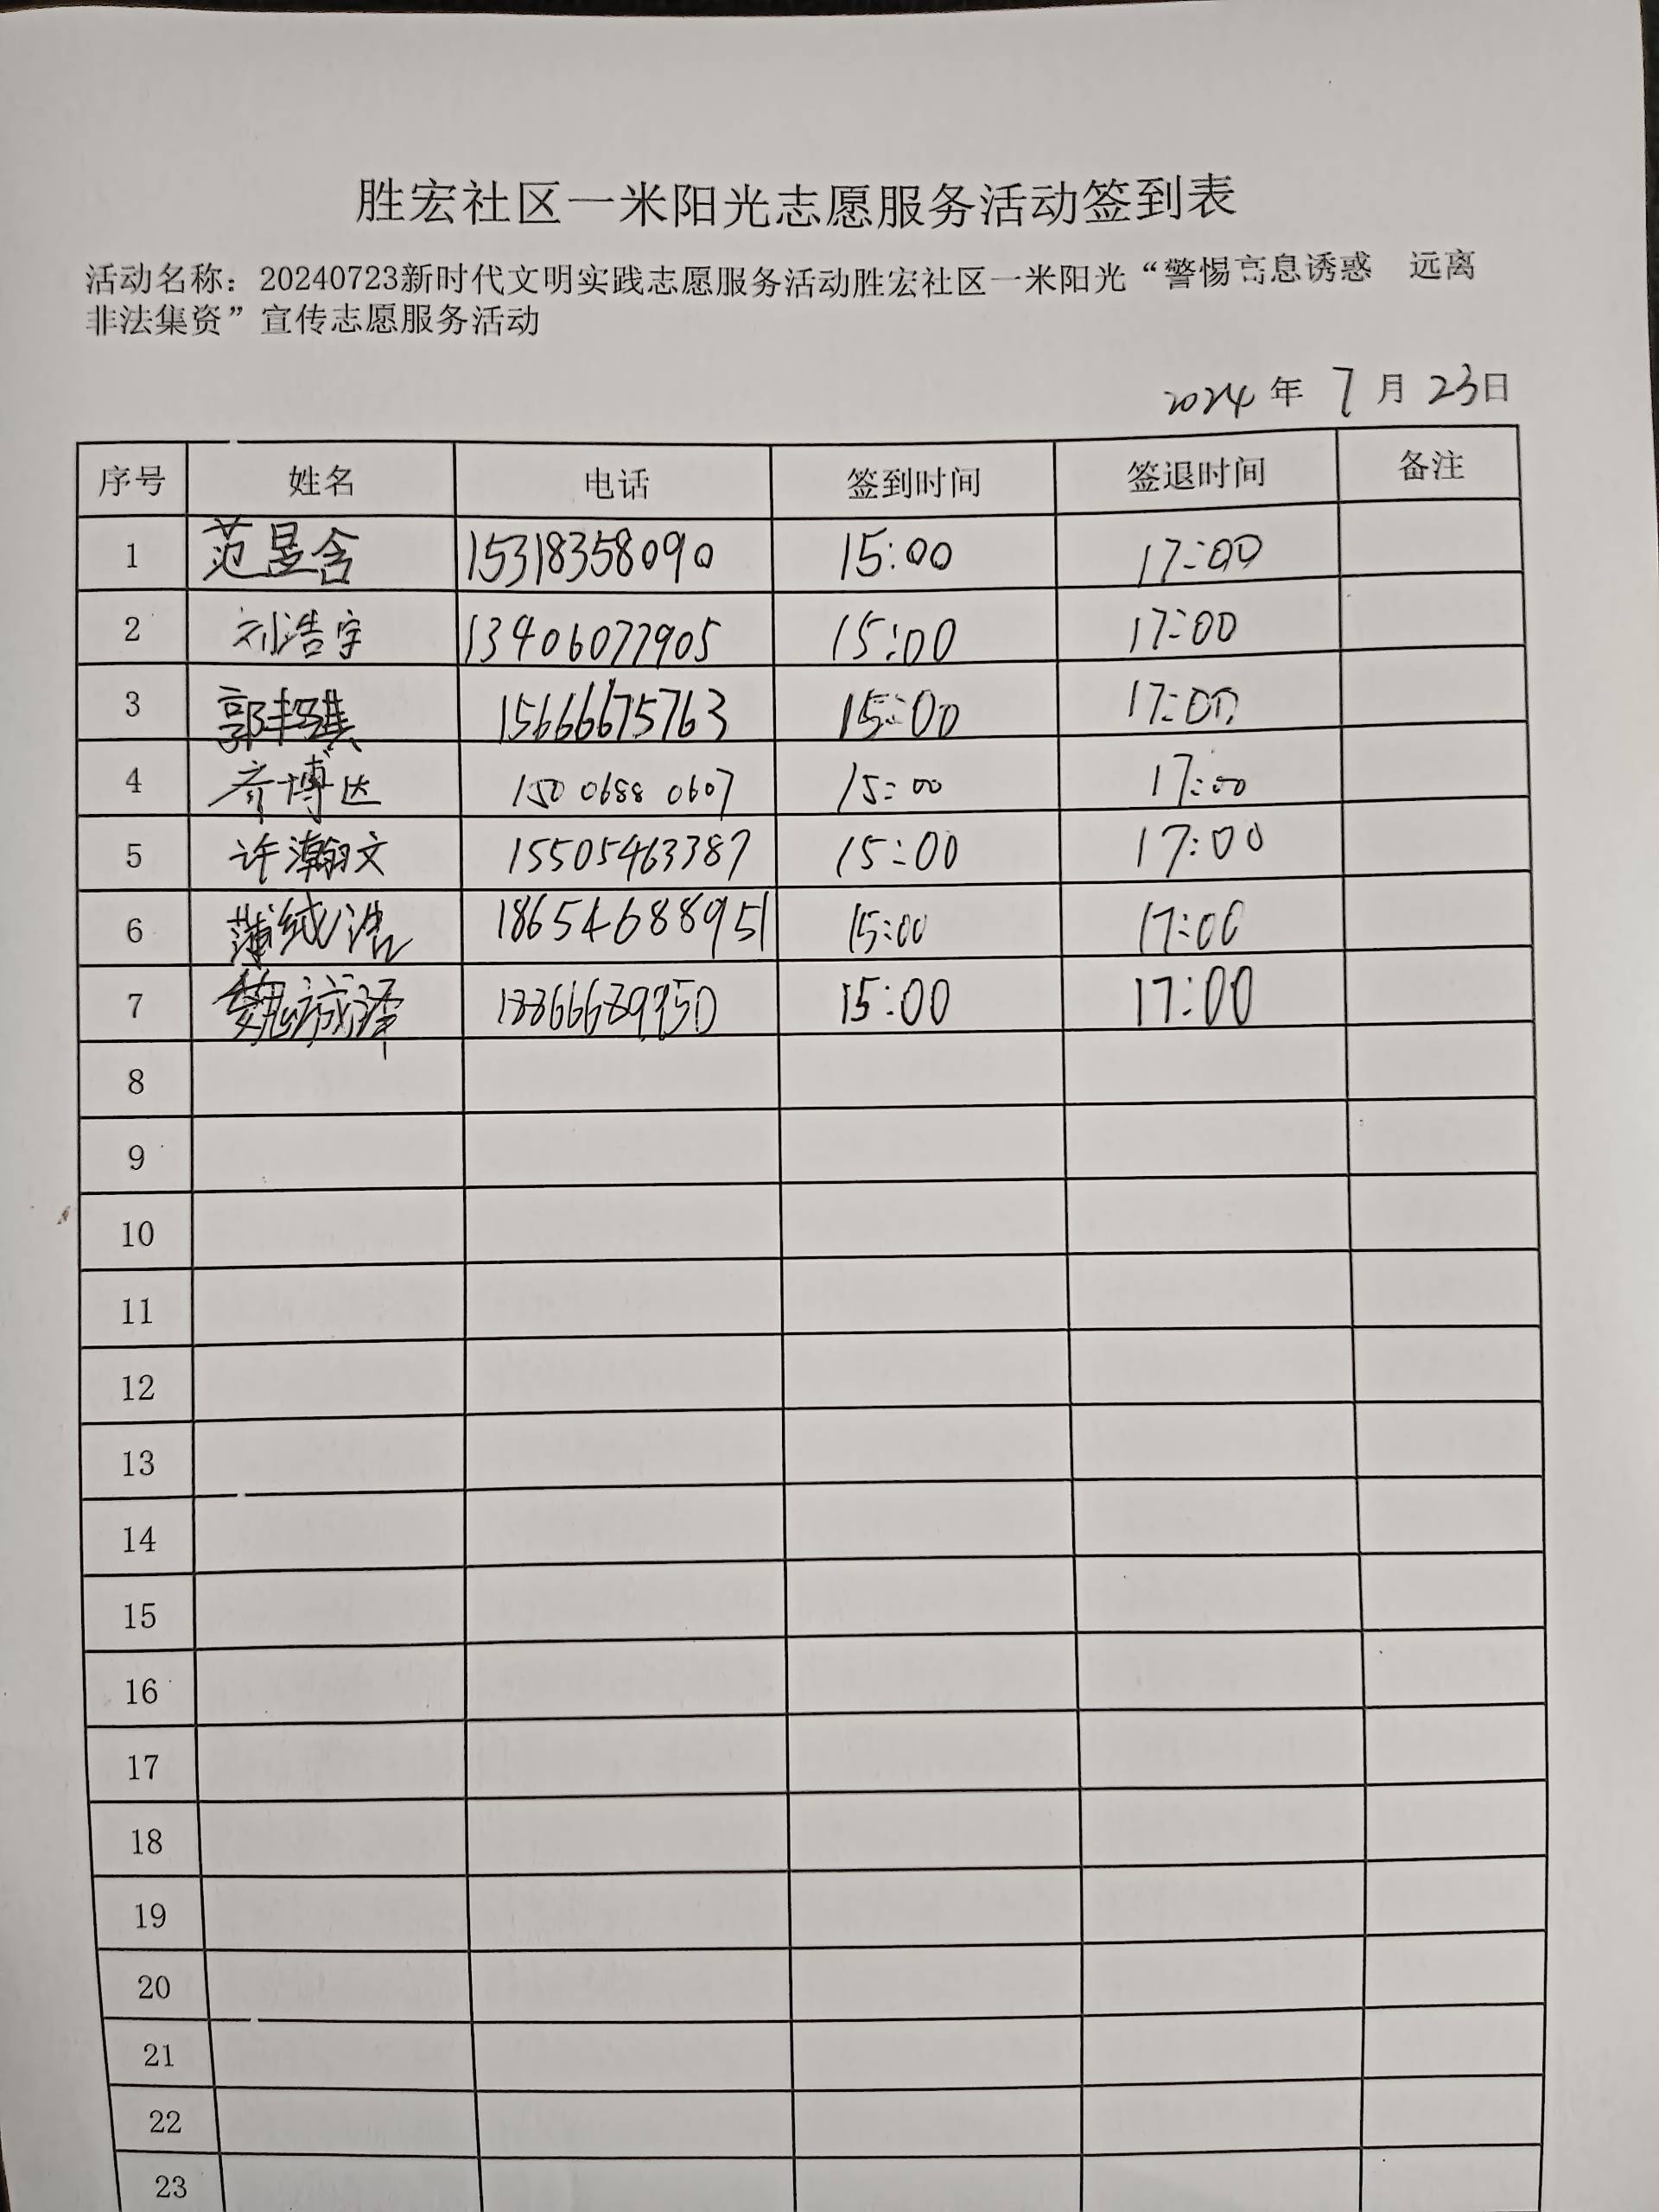 胜宏社区一米阳光志愿服务活动签到表
活动名称：20240723新时代文明实践志愿服务活动胜宏社区一米阳光“警惕高息诱惑 远离
非法集资”宣传志愿服务活动
2024 年 7 月 23日
序号 姓名 电话 签到时间 签退时间 备注
1 范昱含 15318358090 15:00 17:00
2 刘浩宇 13406077905 15:00 17:00
3 郭丰骐 15666675763 15:00 17:00
4 齐博达 15006888 0607 15:00 17:00
5 许瀚文 15505463387 15:00 17:00
6 蒲绒浩 18654688951 15:00 17:00
7 魏诚泽 15:00 17:00
8
9
10
11
12
13
14
15
16
17
18
19
20
21
22
23